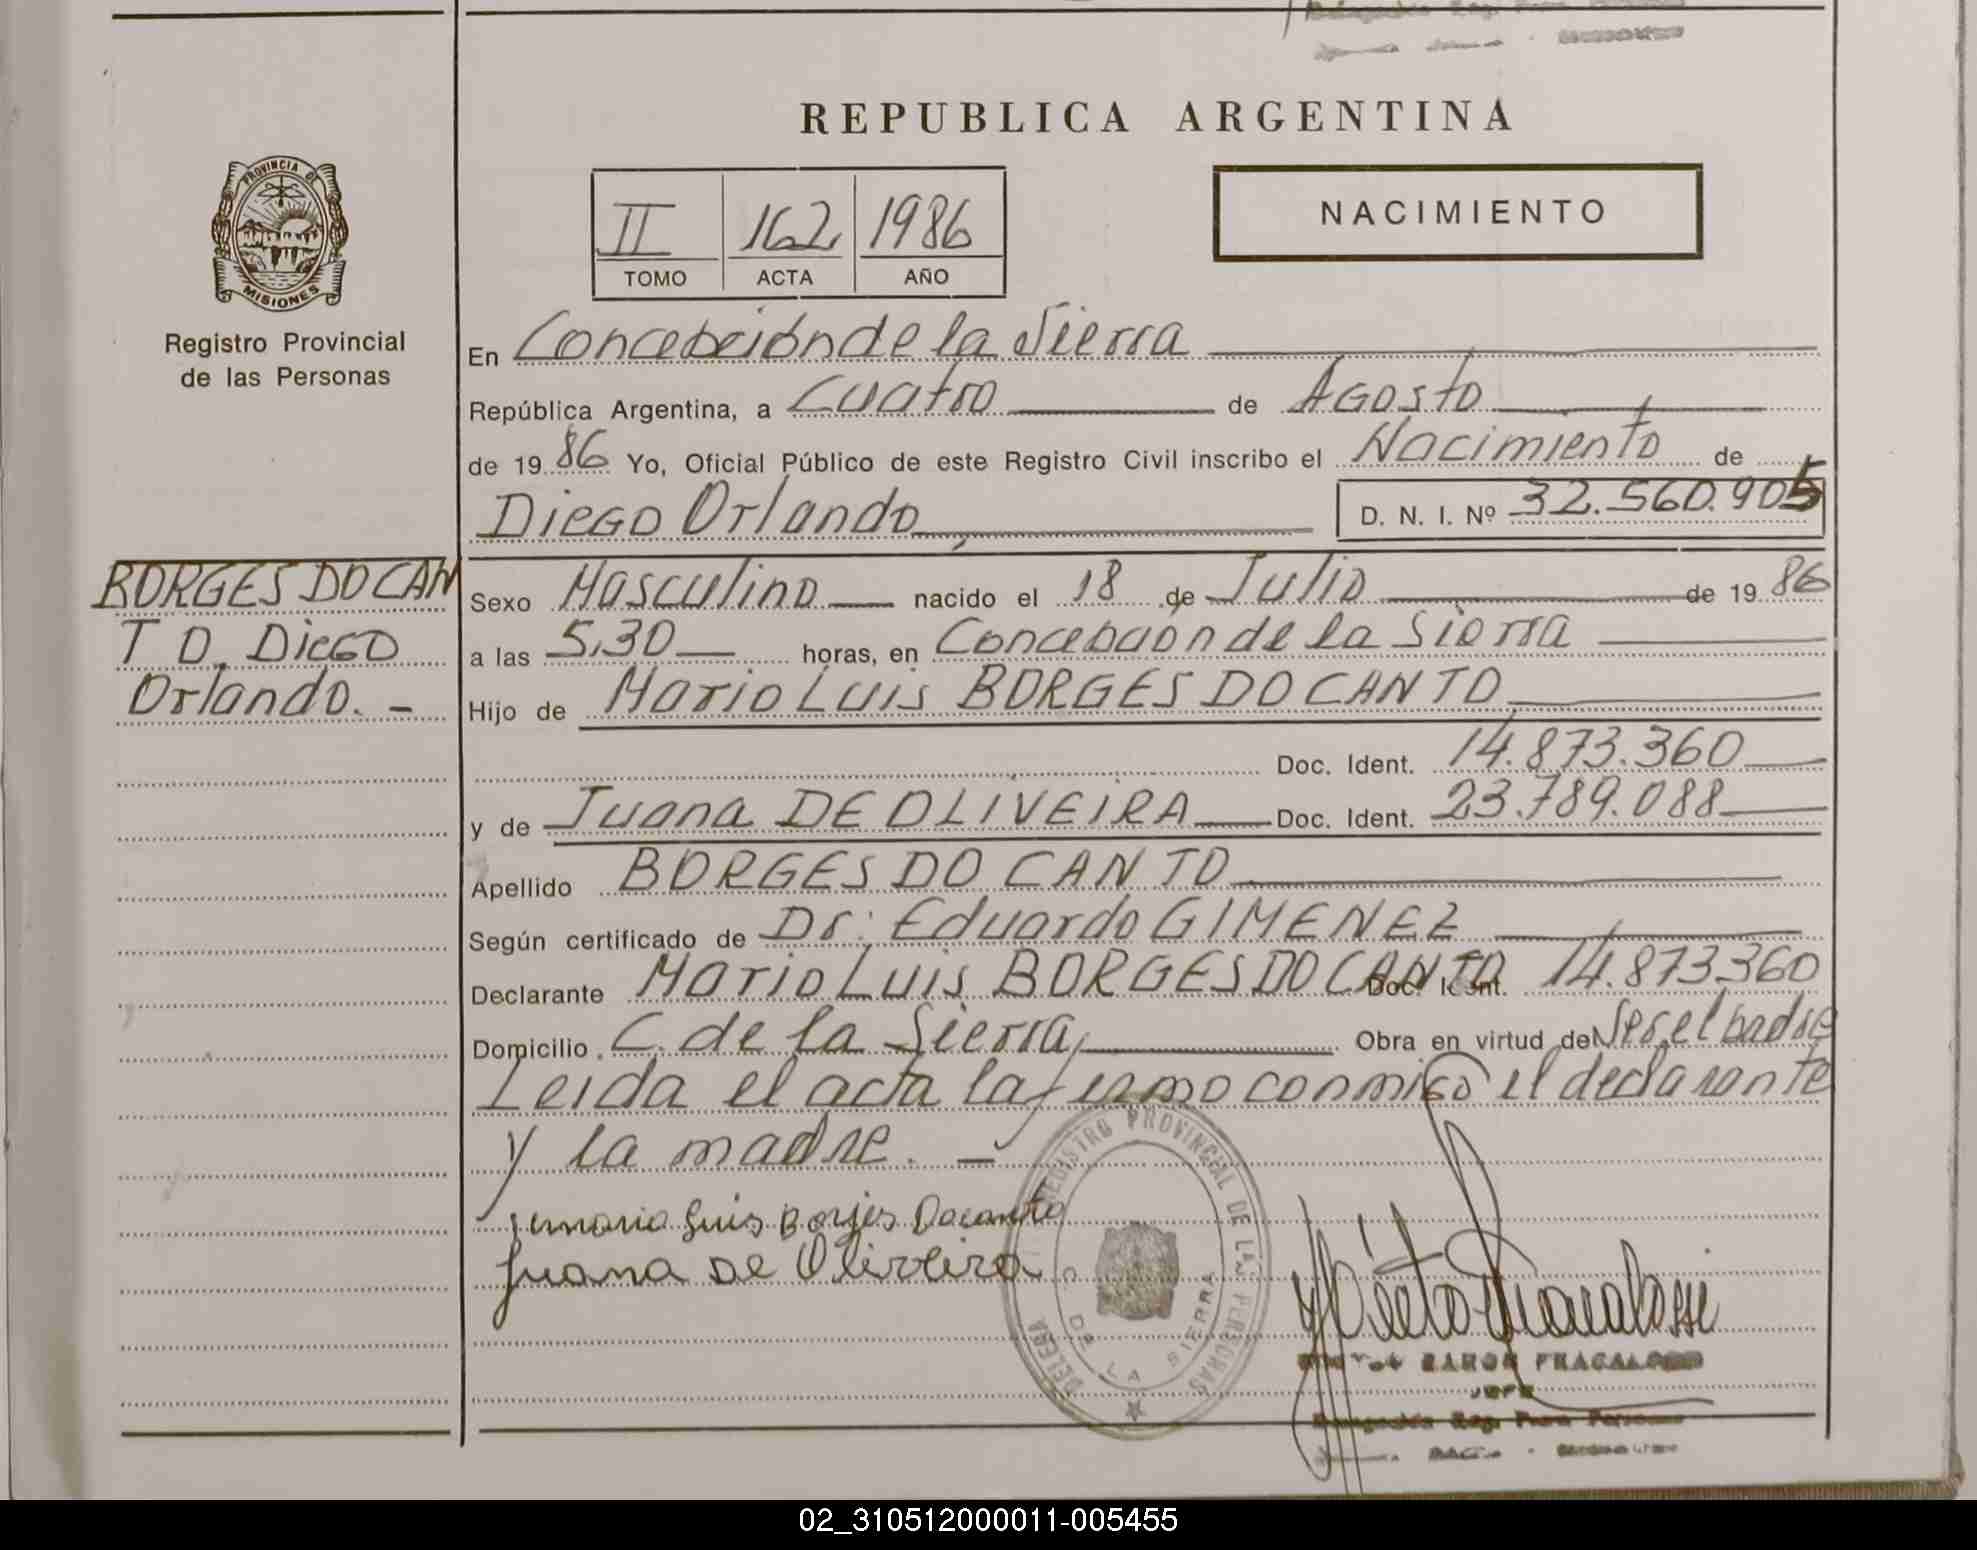 REPUBLICA ARGENTINA
PROVINCIA DE
MISIONES
Registro Provincial
de las Personas
II 162 1986
TOMO ACTA AÑO
NACIMIENTO
En Concepción de la Sierra
República Argentina, a Cuatro de Agosto
de 1986 Yo, Oficial Público de este Registro Civil inscribo el Nacimiento de
Diego Orlando D. N. I. Nº 32.560.905
BORGES DO CAN
T O. Diego
Orlando. -
Sexo Masculino nacido el 18 de Julio de 1986
a las 5,30 horas, en Concepción de la Sierra
Hijo de Mario Luis BORGES DO CANTO
Doc. Ident. 14.873.360
y de Juana DE OLIVEIRA Doc. Ident. 23.789.088
Apellido BORGES DO CANTO
Según certificado de Dr: Eduardo GIMENEZ
Declarante Mario Luis BORGES DO CANTO Doc. Ident. 14.873360
Domicilio C. de la Sierra, Obra en virtud de Ser el padre
Leida el acta la firmo conmigo el declarante
y la madre. -
mario Luis Borjes Docanto
Juana De Oliveira
REGISTRO PROVINCIAL DE LAS PERSONAS
C. DE LA SIERRA
FRACALOSSI
JEFE
02_310512000011-005455